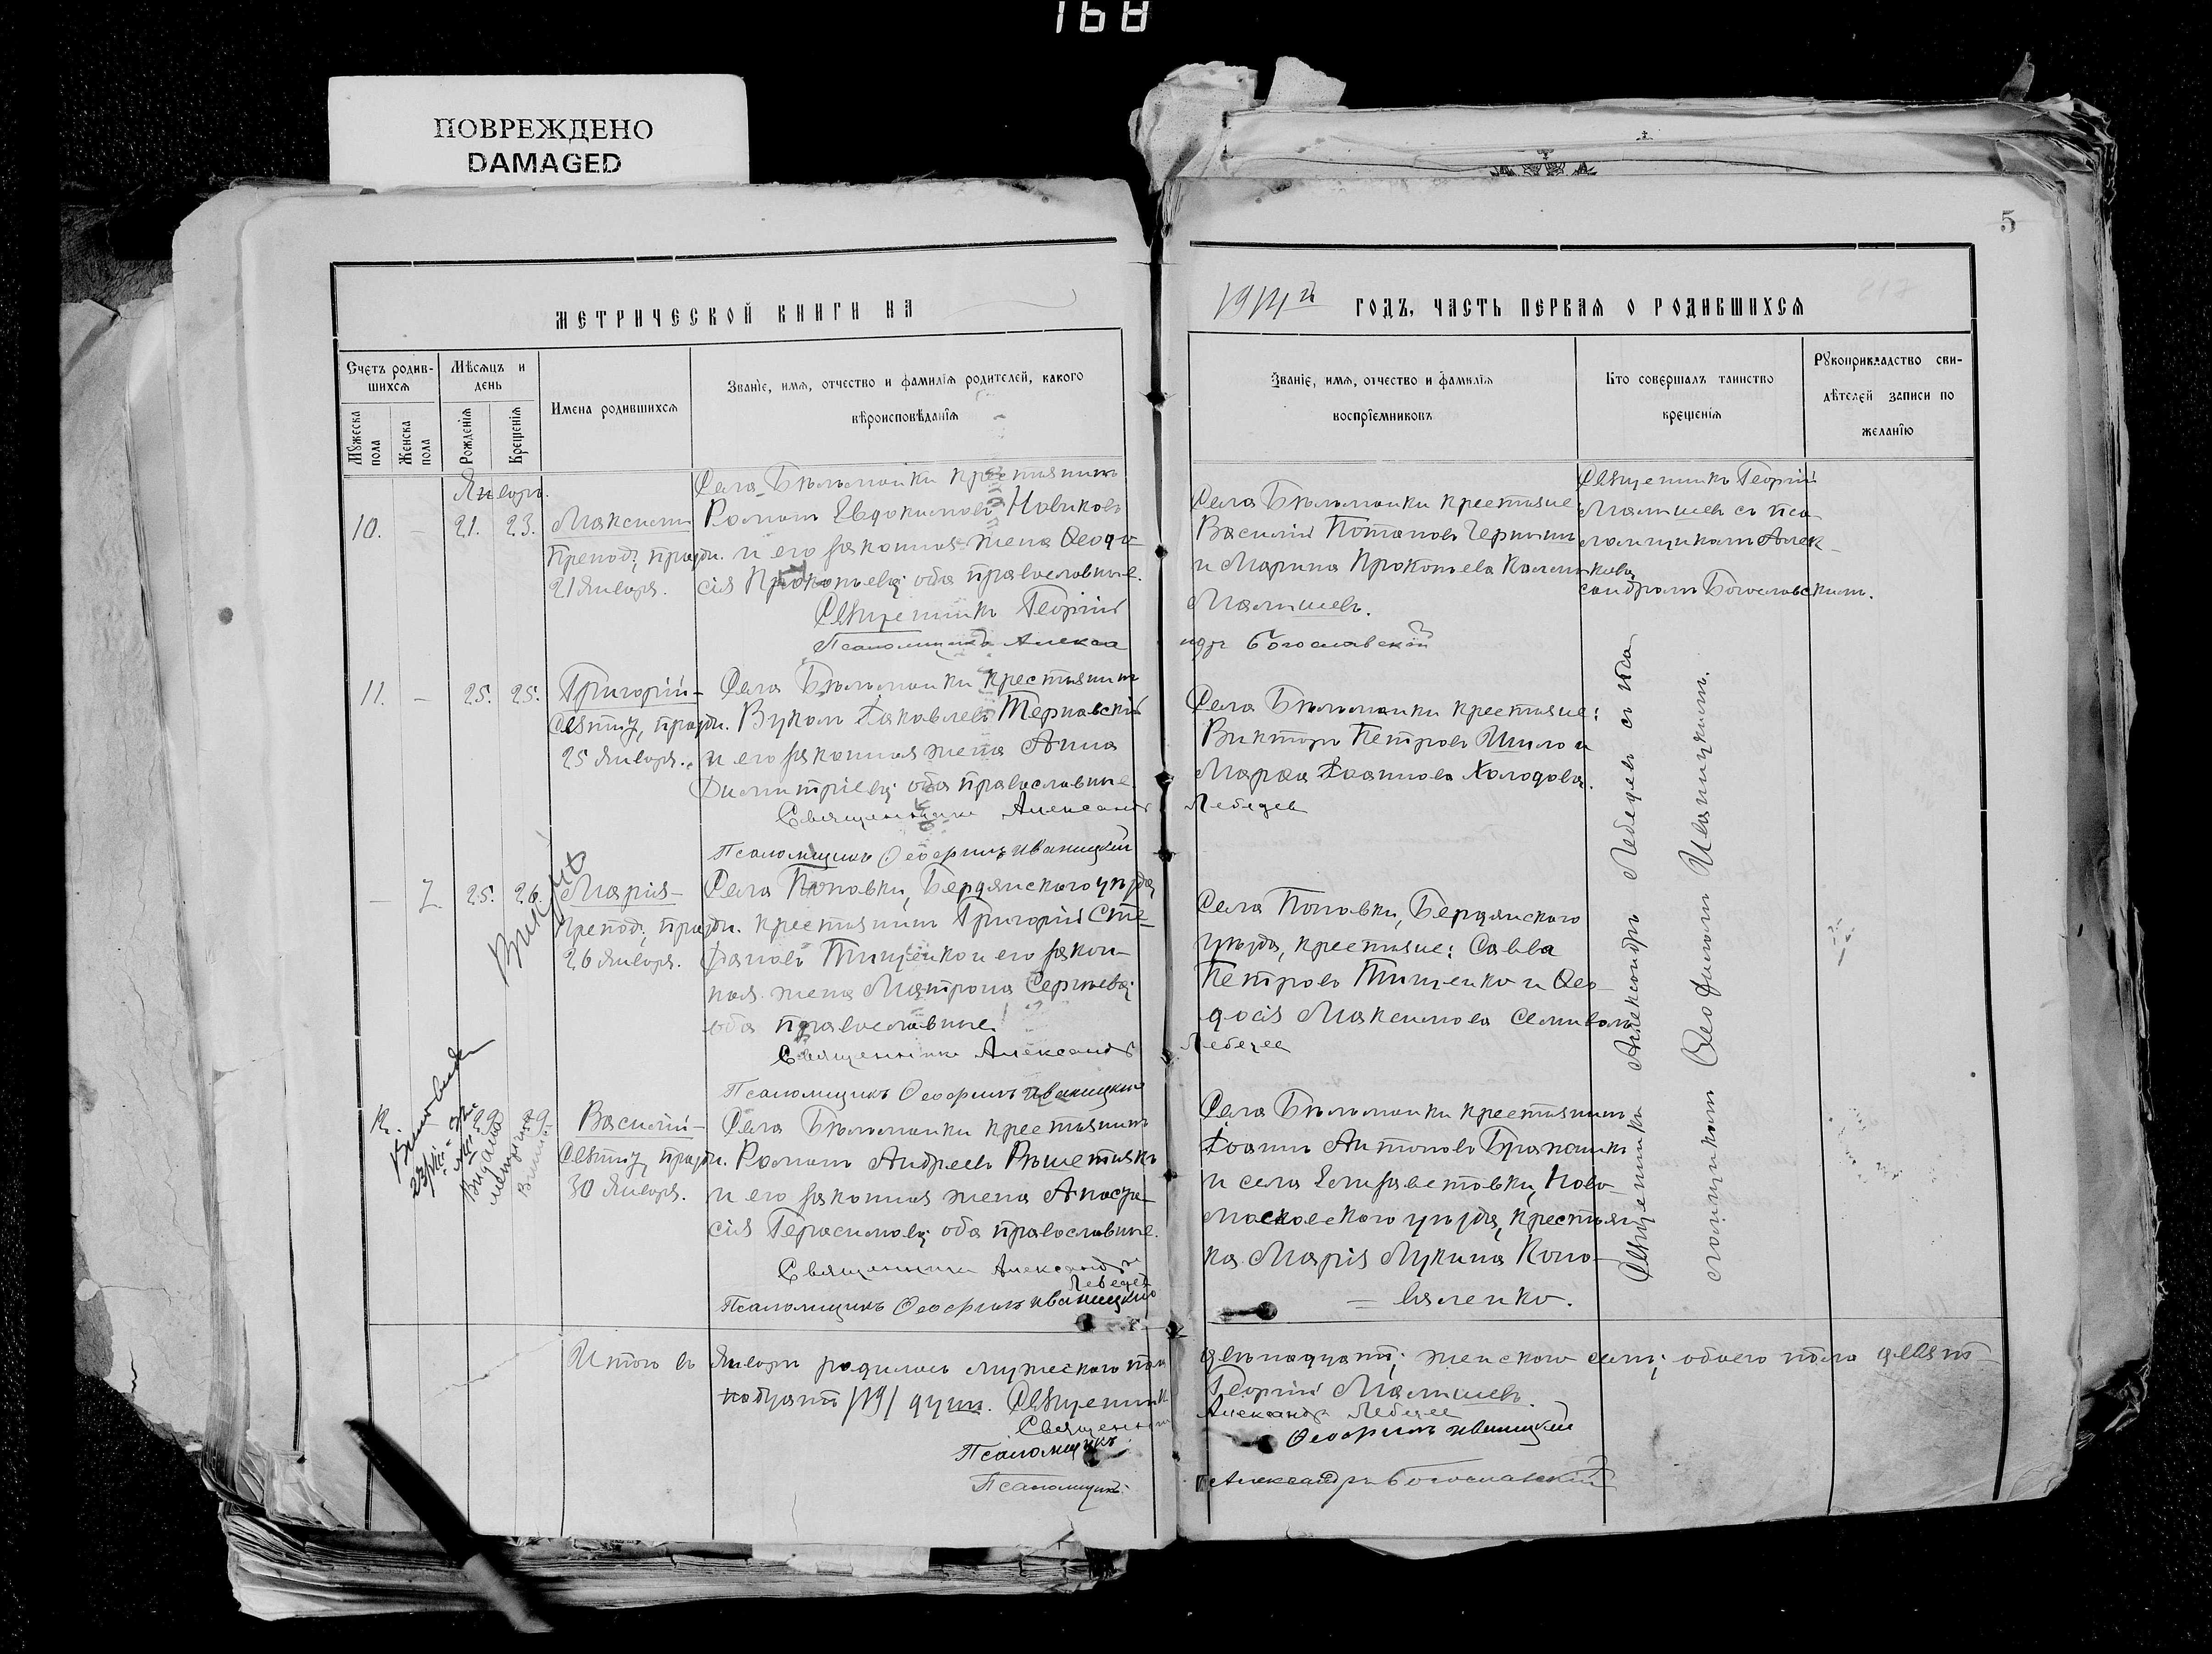 168
ПОВРЕЖДЕНО
DAMAGED
5
МЕТРИЧЕСКОЙ КНИГИ НА
1914й ГОДЪ, ЧАСТЬ ПЕРВАЯ О РОДИВШИХСЯ
Счетъ родившихся
Мужеска пола
Женска пола
Мѣсяцъ и день
Рожденія
Крещенія
Имена родившихся
Званіе, имя, отчество и фамилія родителей, какого
вѣроисповѣданія
Званіе, имя, отчество и фамилія
воспріемниковъ
Кто совершалъ таинство
крещенія
Рукоприкладство сви-
дѣтелей записи по
желанію
Январь.
10. – 21. 23. Максимъ
Препод., праздн.
21 Января.
Села Бѣльманки крестьянинъ
Романъ Евдокимовъ Новиковъ
и его законная жена Ѳеодо-
сія Прокопьева; оба православные.
Священникъ Георгій
Малышевъ.
Псаломщикъ Алекса
ндръ Богославскій
Села Бѣльманки крестьяне
Василій Потаповъ
и Марина Прокопьева
Священникъ Георгій
Малышевъ съ пса-
ломщикомъ Алек-
сандромъ Богословскимъ.
11. – 25. 25. Григорій –
Святит., праздн.
25 Января.
Села Бѣльманки крестьянинъ
Вуколъ Іаковлевъ Терновскій
и его законная жена Анна
Димитріева; оба православные
Священникъ Александръ
Лебедев
Псаломщикъ Ѳеофилъ Иваницкій
Села Бѣльманки крестьяне:
Викторъ Петровъ Шило и
Марѳа Іоаннова Холодова.
– 7 25. 26. Марія –
Препод., праздн.
26 Января.
Села Поповки, Бердянскаго уѣзда,
крестьянинъ Григорій Сте-
фановъ Тищенко и его закон-
ная жена Матрона Сергѣева;
оба православные
Священникъ Александръ
Лебедев
Псаломщикъ Ѳеофилъ Иваницкій
Села Поповки, Бердянскаго
уѣзда, крестьяне: Савва
Петровъ Тищенко и Ѳео-
досія Максимова
12. 29 29 Василій –
Святит., праздн.
30 Января.
Села Бѣльманки крестьянинъ
Романъ Андреевъ Рѣшетнякъ
и его законная жена Анаста-
сія Герасимова; оба православные.
Священникъ Александръ
Лебедев
Псаломщикъ Ѳеофилъ Иваницкій
Села Бѣльманки крестьянинъ
Іоаннъ Антоновъ Бражникъ
и села Елизаветовки, Ново-
московскаго уѣзда, крестьян-
ка Марія Лукина Коно-
= валенко.
Священникъ Александръ Лебедевъ съ пса-
ломщикомъ Ѳеофиломъ Иваницкимъ.
Итого въ Январѣ родилось мужескаго пола двѣнадцать; женскаго семь; обоего пола девят-
надцать /19/ душъ. Священникъ Георгій Малышевъ
Священникъ Александръ Лебедев
Псаломщикъ Ѳеофилъ Иваницкій
Псаломщикъ: Александръ Богославскій